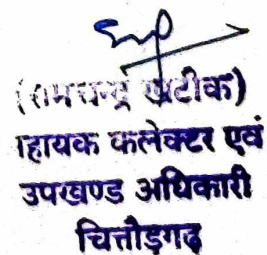 (रामचन्द्र खटीक)
हायक कलेक्टर एवं
उपखण्ड अधिकारी
चित्तौड़गढ़